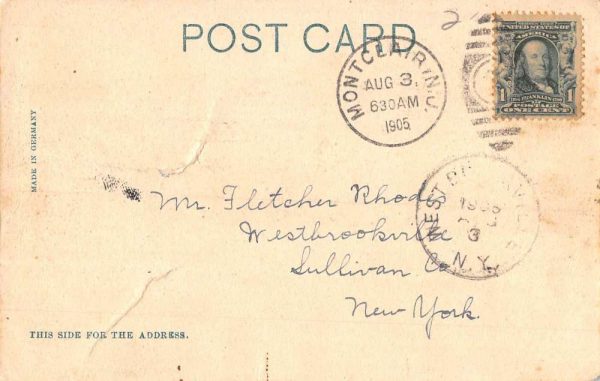 2
POST CARD
UNITED STATES OF
AMERICA
FRANKLIN
1 POSTAGE 1
ONE CENT
MONTCLAIR, N.J.
AUG 3
630AM
1905
MADE IN GERMANY
WEST
1905
3
N.Y.
Mr. Fletcher Rhodes
Westbrookville
Sullivan Co
New York.
THIS SIDE FOR THE ADDRESS.